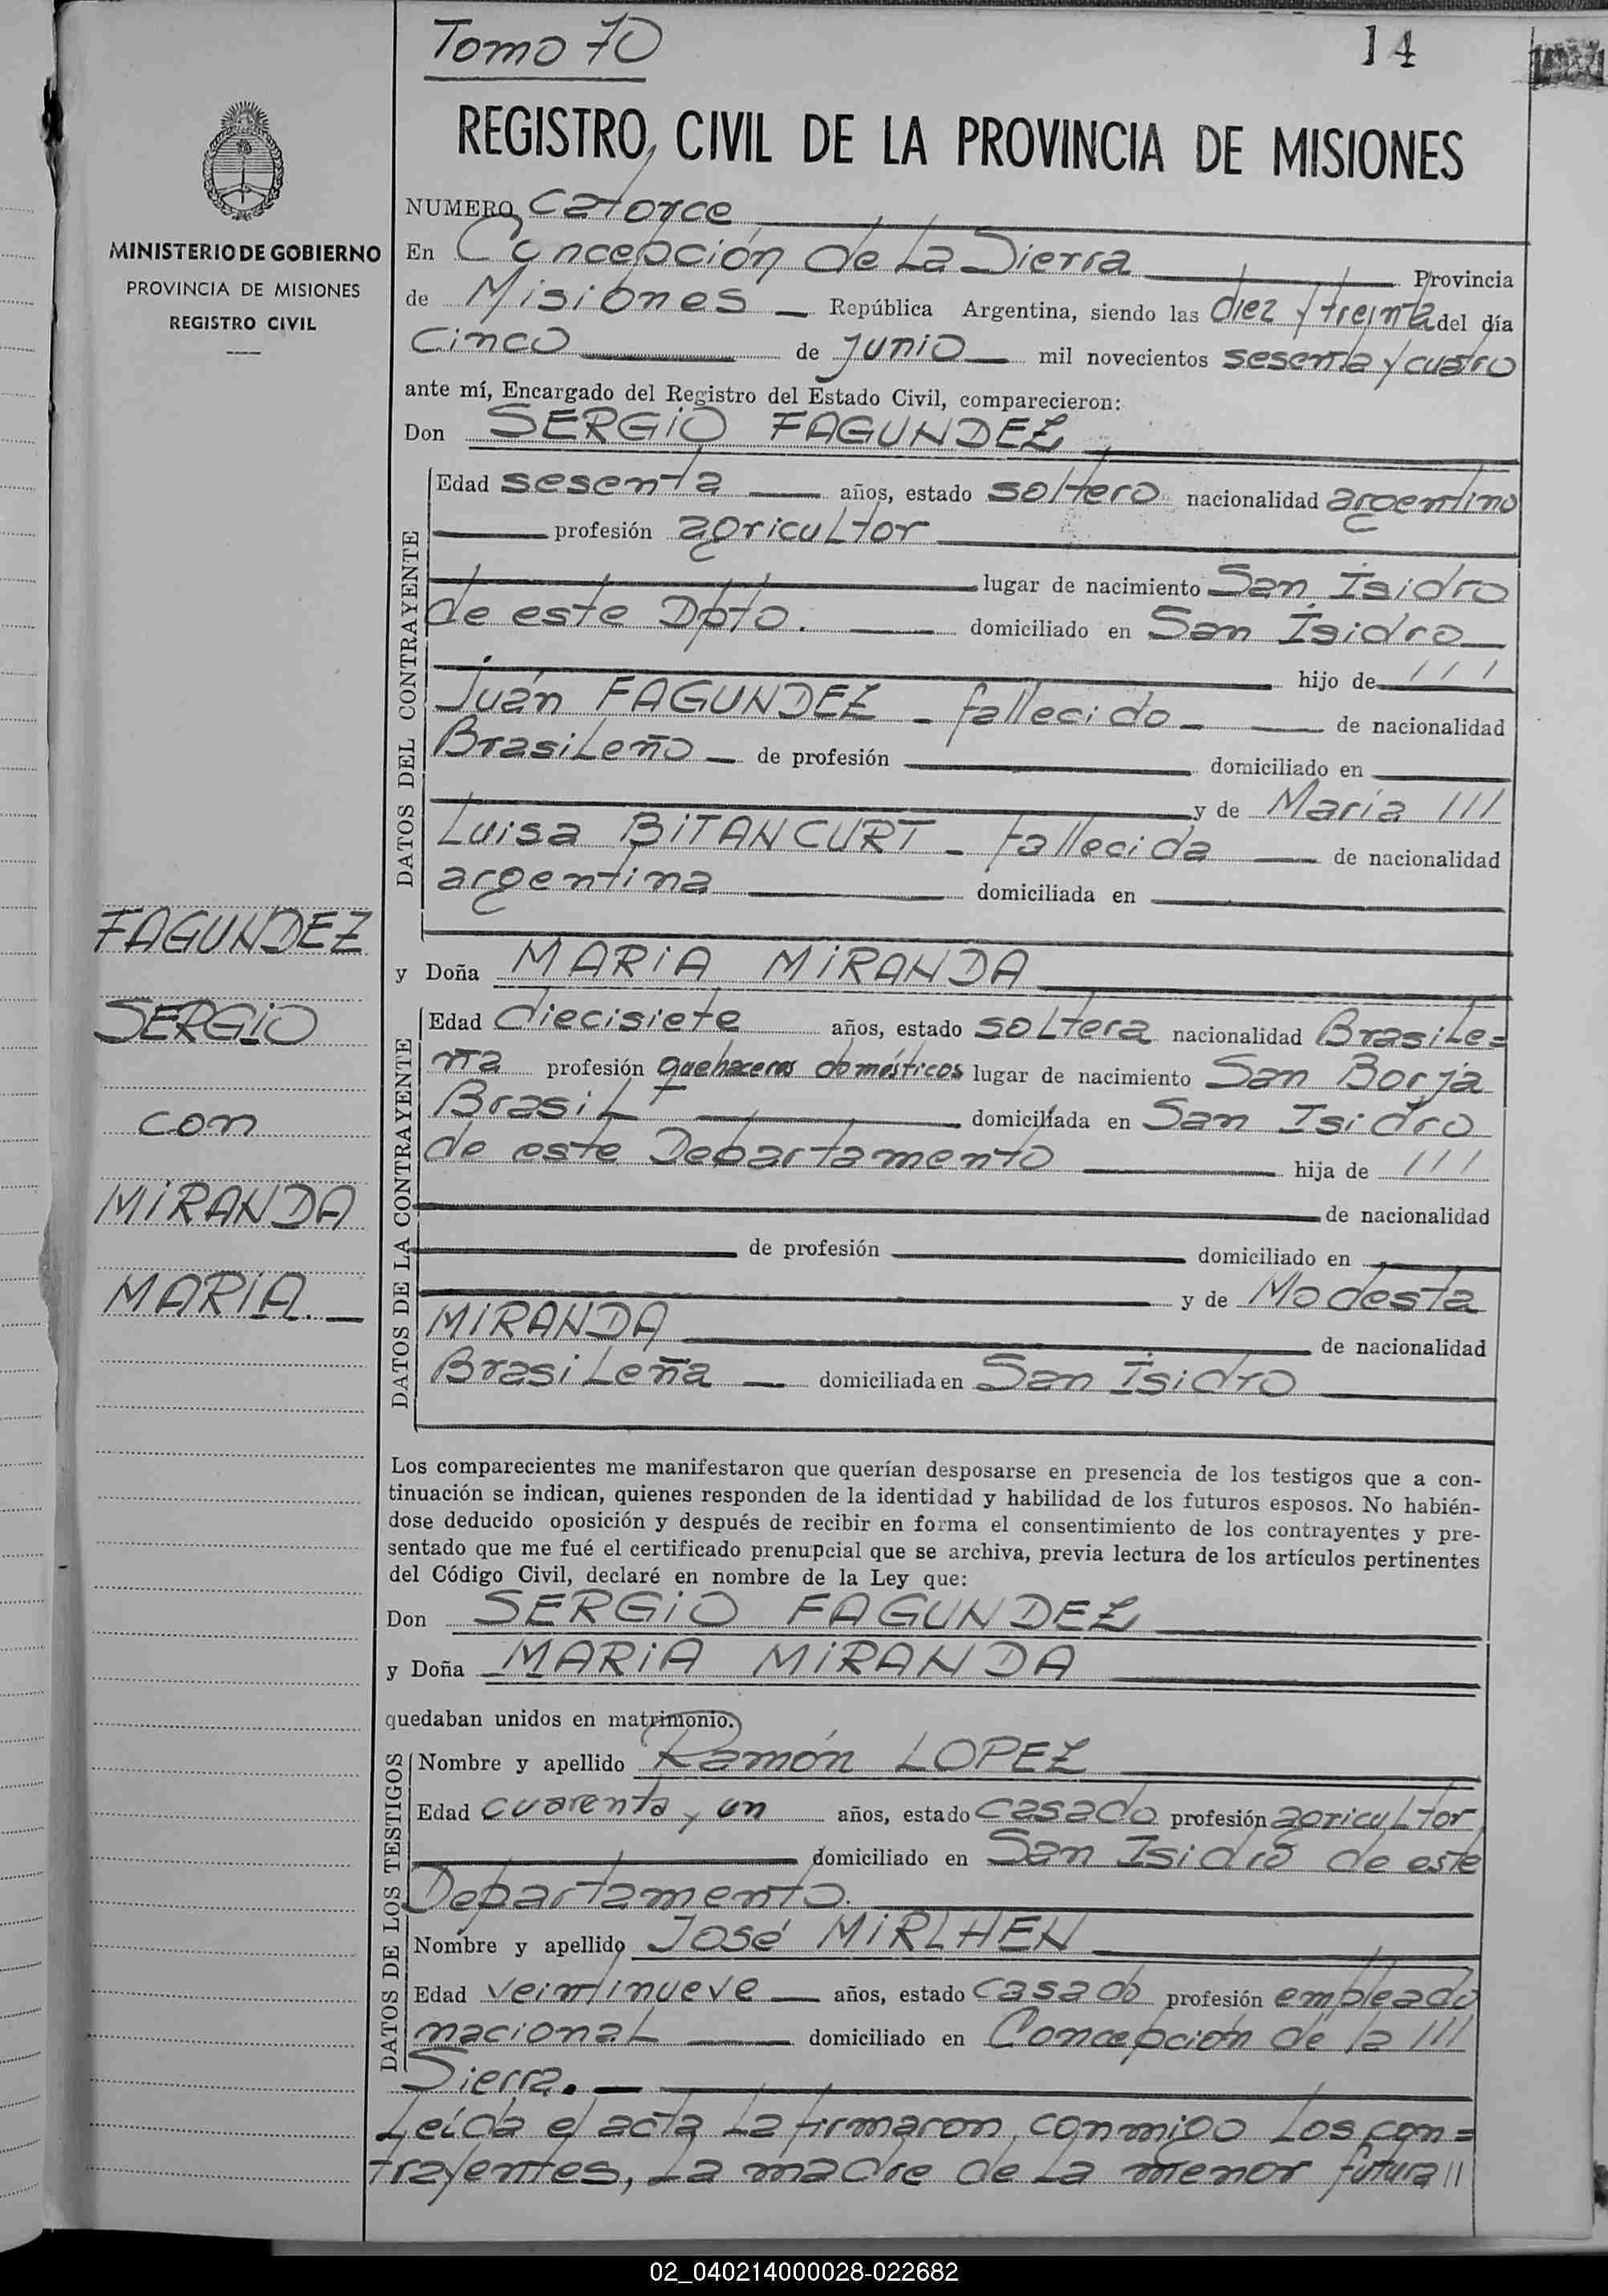 Tomo 70
14
REGISTRO CIVIL DE LA PROVINCIA DE MISIONES
MINISTERIO DE GOBIERNO
PROVINCIA DE MISIONES
REGISTRO CIVIL
NUMERO Catorce
En Concepción de La Sierra Provincia
de Misiones República Argentina, siendo las diez y treinta del día
Cinco de Junio mil novecientos sesenta y cuatro
ante mí, Encargado del Registro del Estado Civil, comparecieron:
Don SERGIO FAGUNDEZ
DATOS DEL CONTRAYENTE
Edad sesenta años, estado soltero nacionalidad argentino
profesión agricultor
lugar de nacimiento San Isidro
de este Dpto. domiciliado en San Isidro
hijo de ///
Juán FAGUNDEZ - fallecido - de nacionalidad
BrasiLeño de profesión domiciliado en
y de María ///
Luisa BITANCURT - fallecida de nacionalidad
argentina domiciliada en
FAGUNDEZ
SERGIO
con
MIRANDA
MARIA.
y Doña MARIA MIRANDA
DATOS DE LA CONTRAYENTE
Edad diecisiete años, estado soLtera nacionalidad BrasiLe=
ña profesión quehaceres domésticos lugar de nacimiento San Borja
BrasiL domiciliada en San Isidro
de este Departamento hija de ///
de nacionalidad
de profesión domiciliado en
y de Modesta
MIRANDA de nacionalidad
BrasiLeña domiciliada en San Isidro
Los comparecientes me manifestaron que querían desposarse en presencia de los testigos que a con-
tinuación se indican, quienes responden de la identidad y habilidad de los futuros esposos. No habién-
dose deducido oposición y después de recibir en forma el consentimiento de los contrayentes y pre-
sentado que me fué el certificado prenupcial que se archiva, previa lectura de los artículos pertinentes
del Código Civil, declaré en nombre de la Ley que:
Don SERGIO FAGUNDEZ
y Doña MARIA MIRANDA
quedaban unidos en matrimonio.
DATOS DE LOS TESTIGOS
Nombre y apellido Ramón LOPEZ
Edad cuarenta y un años, estado casado profesión agricuLtor
domiciliado en San Isidro de este
Departamento.
Nombre y apellido José MIRLHEN
Edad veintinueve años, estado casado profesión empleado
nacionaL domiciliado en Concepción de la ///
Sierra.
Leída el acta La firmaron conmigo Los con=
trayentes, La madre de La menor futura //
02_040214000028-022682